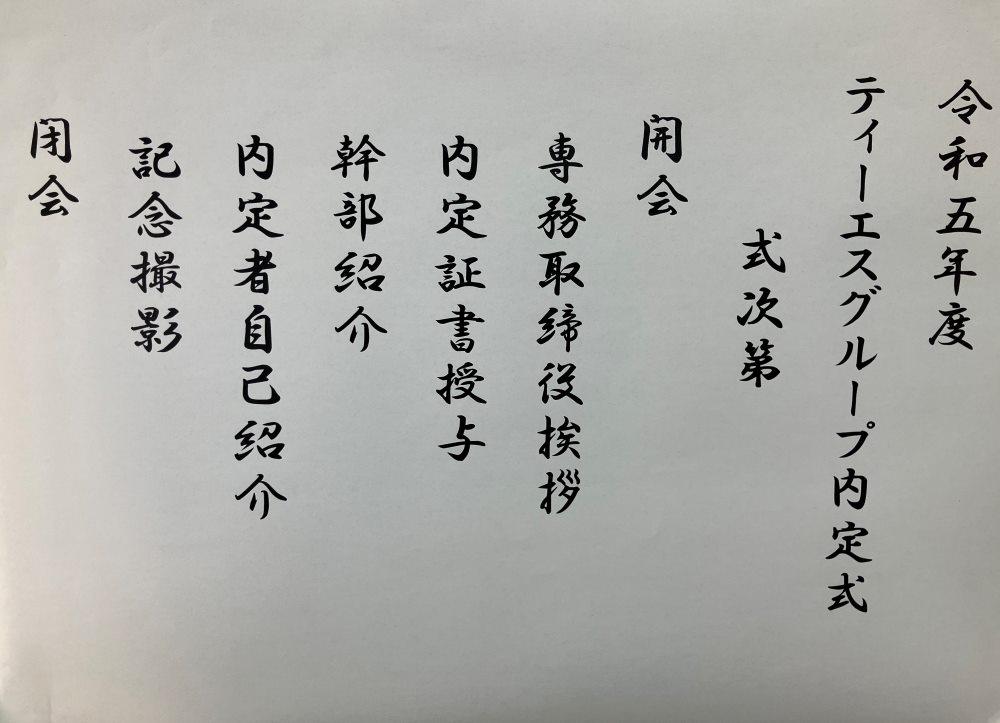 令和五年度
ティーエスグループ内定式
式次第
開会
専務取締役挨拶
内定証書授与
幹部紹介
内定者自己紹介
記念撮影
閉会